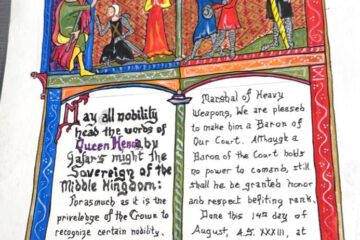 May all nobility
head the words of
Queen Kenna by
Gafar's might the
Sovereign of the
Middle Kingdom:
Forasmuch as it is the
priveledge of the Crown to
recognize certain nobility,
Marshal of Heavy
Weapons, We are pleased
to make him a Baron of
Our Court. Althaygh a
Baron of the Court holds
no power to comend, still
shall he be granted honor
and respect befiting rank.
Done this 14th day of
August, A.S. XXXIII, at